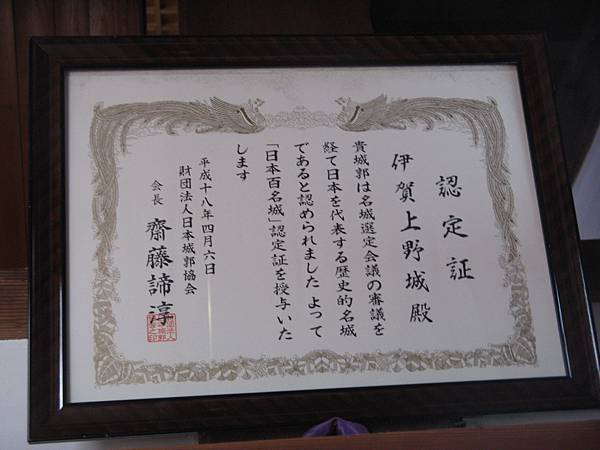 認定証
伊賀上野城殿
貴城郭は名城選定会議の審議を
経て日本を代表する歴史的名城
であると認められました よって
「日本百名城」認定証を授与いた
します
平成十八年四月六日
財団法人日本城郭協会
会長 齋藤諦淳